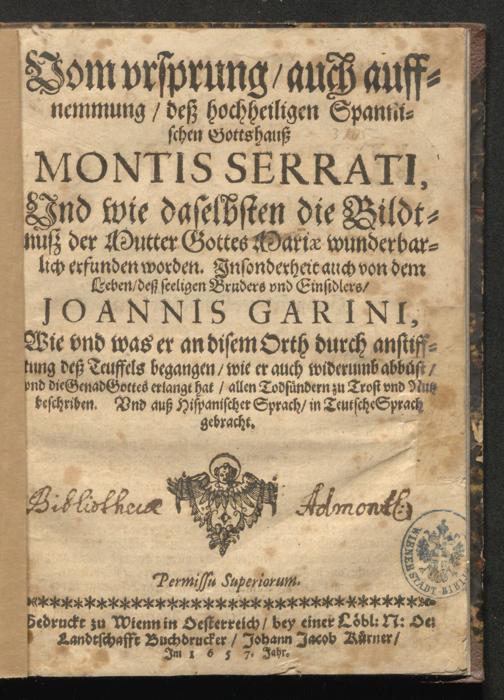 Vom vrsprung / auch auff-
nemmung / deß hochheiligen Spanni-
schen Gottshauß
MONTIS SERRATI,
Vnd wie daselbsten die Bildt-
nuß der Mutter Gottes Mariæ wunderbar-
lich erfunden worden. Insonderheit auch von dem
Leben / deß seeligen Bruders vnd Einsidlers /
JOANNIS GARINI,
Wie vnd was er an disem Orth durch anstiff-
tung deß Teuffels begangen / wie er auch widerumb abbüst /
vnd die Genad Gottes erlangt hat / allen Todsündern zu Trost vnd Nutz
beschriben. Vnd auß Hispanischer Sprach / in Teutsche Sprach
gebracht.
Bibliothecæ Admont:
Permissu Superiorum.
Gedruckt zu Wienn in Oesterreich / bey einer Löbl: N: Oe:
Landtschafft Buchdrucker / Johann Jacob Kürner /
Im 1657. Jahr.